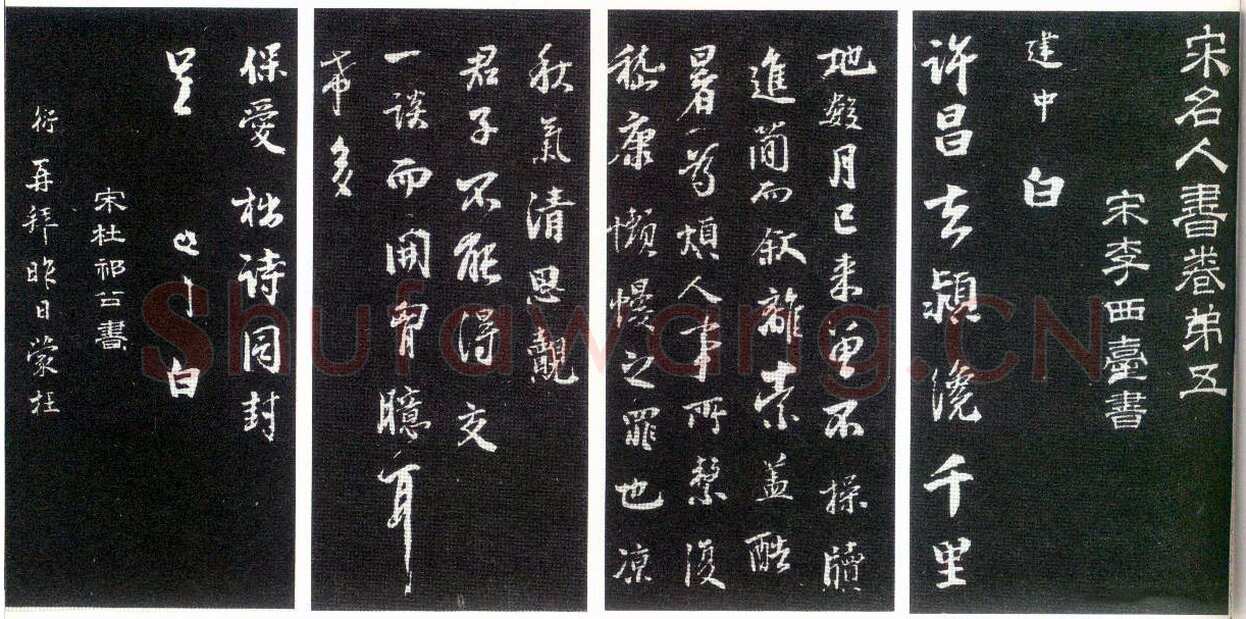 宋名人書卷弟五
宋李西臺書
建中白
許昌去潁纔千里
地數月已来曾不操牘
進簡而叙離索蓋酷
暑為煩人事所繫復
嵇康懶慢之罪也凉
秋氣清思覿
君子不能得交
一談而開胷臆耳
希多
保愛拙詩同封
呈
白
宋杜祁公書
衍再拜昨日蒙枉
Shufawang.CN